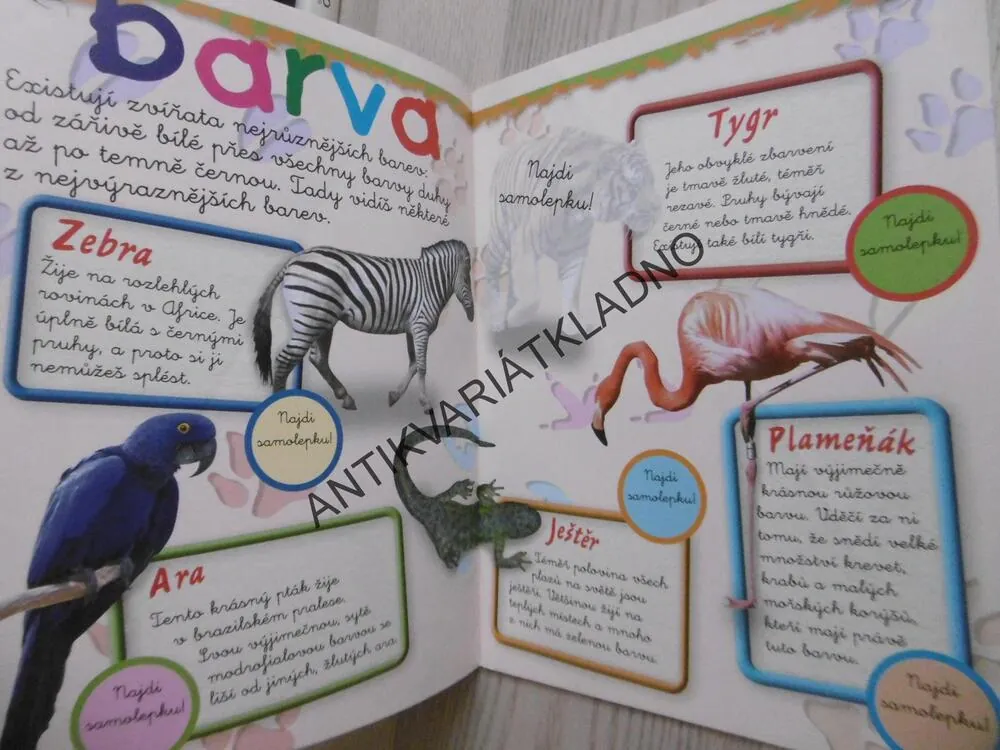 barva
Existují zvířata nejrůznějších barev:
od zářivě bílé přes všechny barvy duhy
až po temně černou. Tady vidíš některé
z nejvýraznějších barev.
Zebra
Žije na rozlehlých
rovinách v Africe. Je
úplně bílá s černými
pruhy, a proto si ji
nemůžeš splést.
Najdi
samolepku!
Ara
Tento krásný pták žije
v brazilském pralese.
Svou výjimečnou, sytě
modrofialovou barvou se
liší od jiných, žlutých ara.
Najdi
samolepku!
Najdi
samolepku!
Tygr
Jeho obvyklé zbarvení
je tmavě žluté, téměř
rezavé. Pruhy bývají
černé nebo tmavě hnědé.
Existují také bílí tygři.
Najdi
samolepku!
Ještěr
Téměř polovina všech
plazů na světě jsou
ještěři. Většinou žijí na
teplých místech a mnoho
z nich má zelenou barvu.
Najdi
samolepku!
Plameňák
Mají výjimečně
krásnou růžovou
barvu. Vděčí za ni
tomu, že snědí velké
množství krevet,
krabů a malých
mořských korýšů,
kteří mají právě
tuto barvu.
Najdi
samolepku!
ANTIKVARIÁTKLADNO